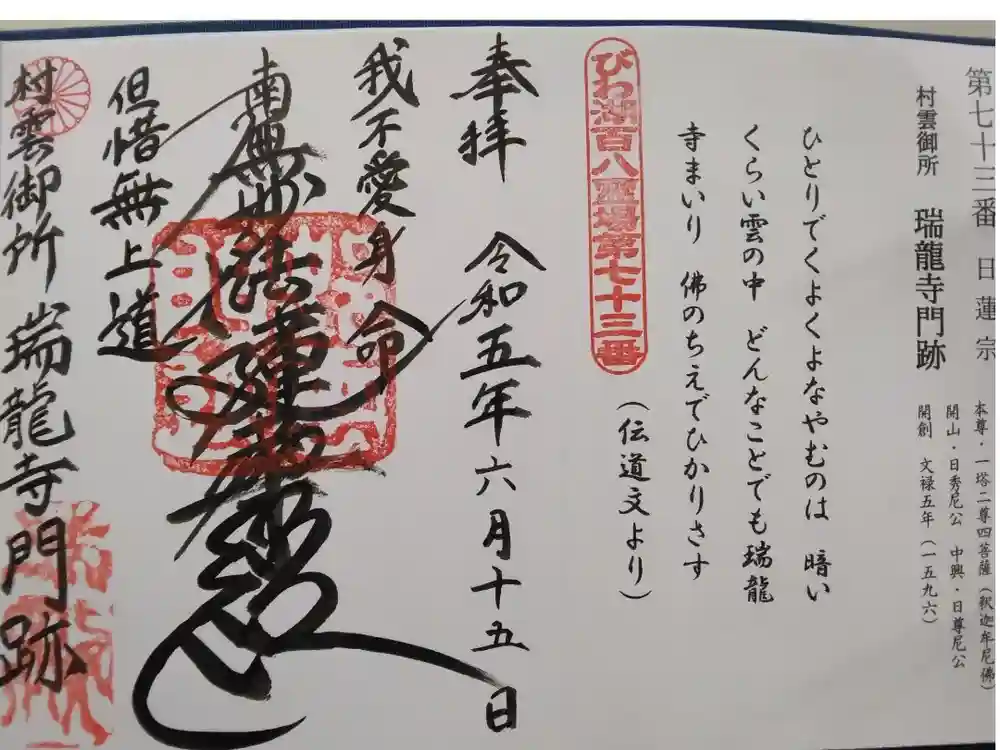 第七十三番 日蓮宗
村雲御所 瑞龍寺門跡
本尊・一塔二尊四菩薩(釈迦牟尼佛)
開山・日秀尼公 中興・日尊尼公
開創 文禄五年(一五九六)
ひとりでくよくよなやむのは 暗い
くらい雲の中 どんなことでも瑞龍
寺まいり 佛のちえでひかりさす
(伝道文より)
びわ湖百八霊場第七十三番
奉拝 令和五年六月十五日
我不愛身命
南無妙法蓮華経
但惜無上道
村雲御所 瑞龍寺門跡